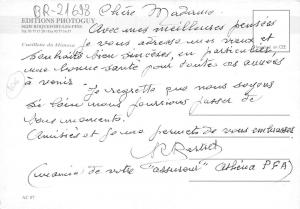 BR-21698
EDITIONS PHOTOGUY
Chère Madame,
Avec mes meilleures pensées
je vous adresse mes vœux et
souhaits bien sincères, en particulier
une bonne santé pour toutes ces années
à venir.
Je regrette que nous soyons
si loin nous pourrions passer de
bons moments.
Amitiés et je me permets de vous embrasser
(mari de votre "assureur" athéna PFA)
AC 87